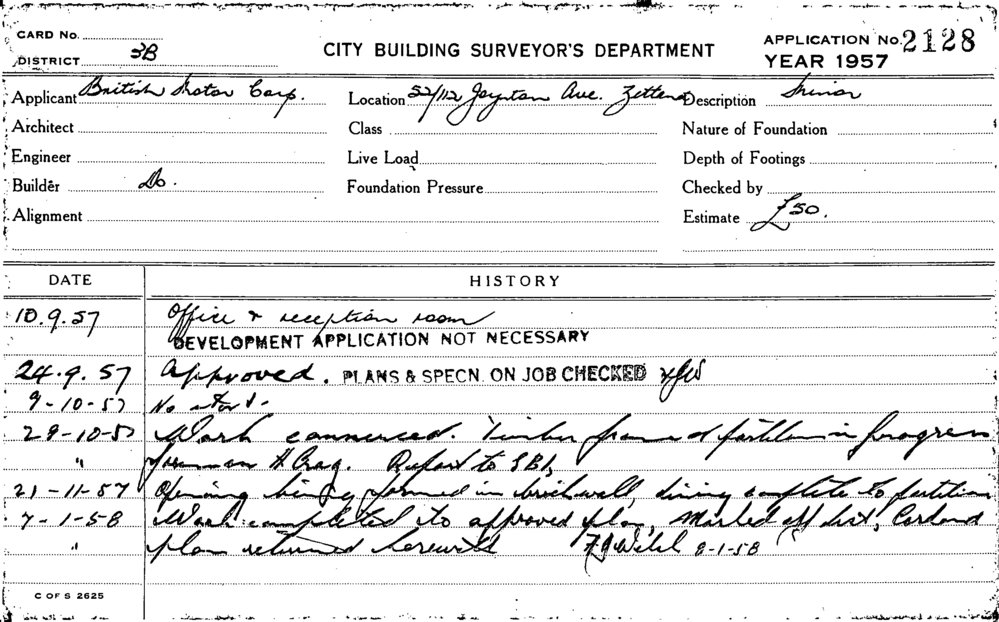 CARD No.
DISTRICT 3B
CITY BUILDING SURVEYOR'S DEPARTMENT
APPLICATION No. 2128
YEAR 1957
Applicant British Motor Corp. Location 52/112 Joynton Ave. Zetland Description Minor
Architect Class Nature of Foundation
Engineer Live Load Depth of Footings
Builder Do. Foundation Pressure Checked by
Alignment Estimate £50.
DATE HISTORY
10.9.57 Office & reception room
DEVELOPMENT APPLICATION NOT NECESSARY
24.9.57 Approved. PLANS & SPECN. ON JOB CHECKED
9-10-57 No start.
29-10-57 Work commenced. Timber frame of partition in progress
" foreman H Report to SBI,
21-11-57 Opening being formed in brickwall, lining complete to partition
7-1-58 Work completed to approved plan, Marked off list, Card and
" plan returned herewith 8-1-58
C OF S 2625